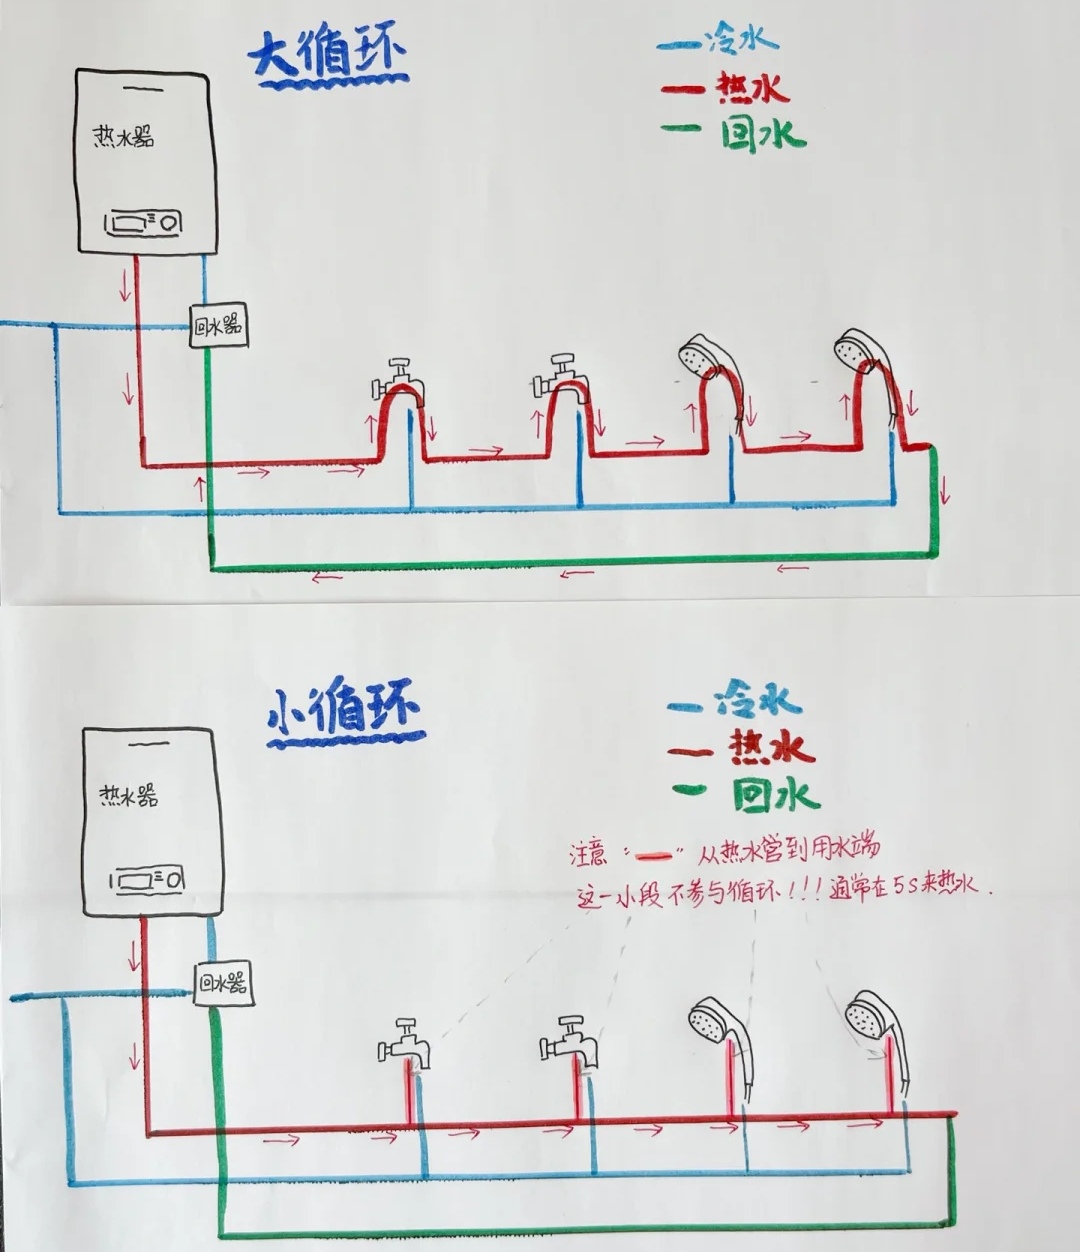 大循环
冷水
热水
回水
热水器
回水器
小循环
冷水
热水
回水
热水器
注意 "—" 从热水管到用水端
这一小段不参与循环!!! 通常在5S来热水.
回水器